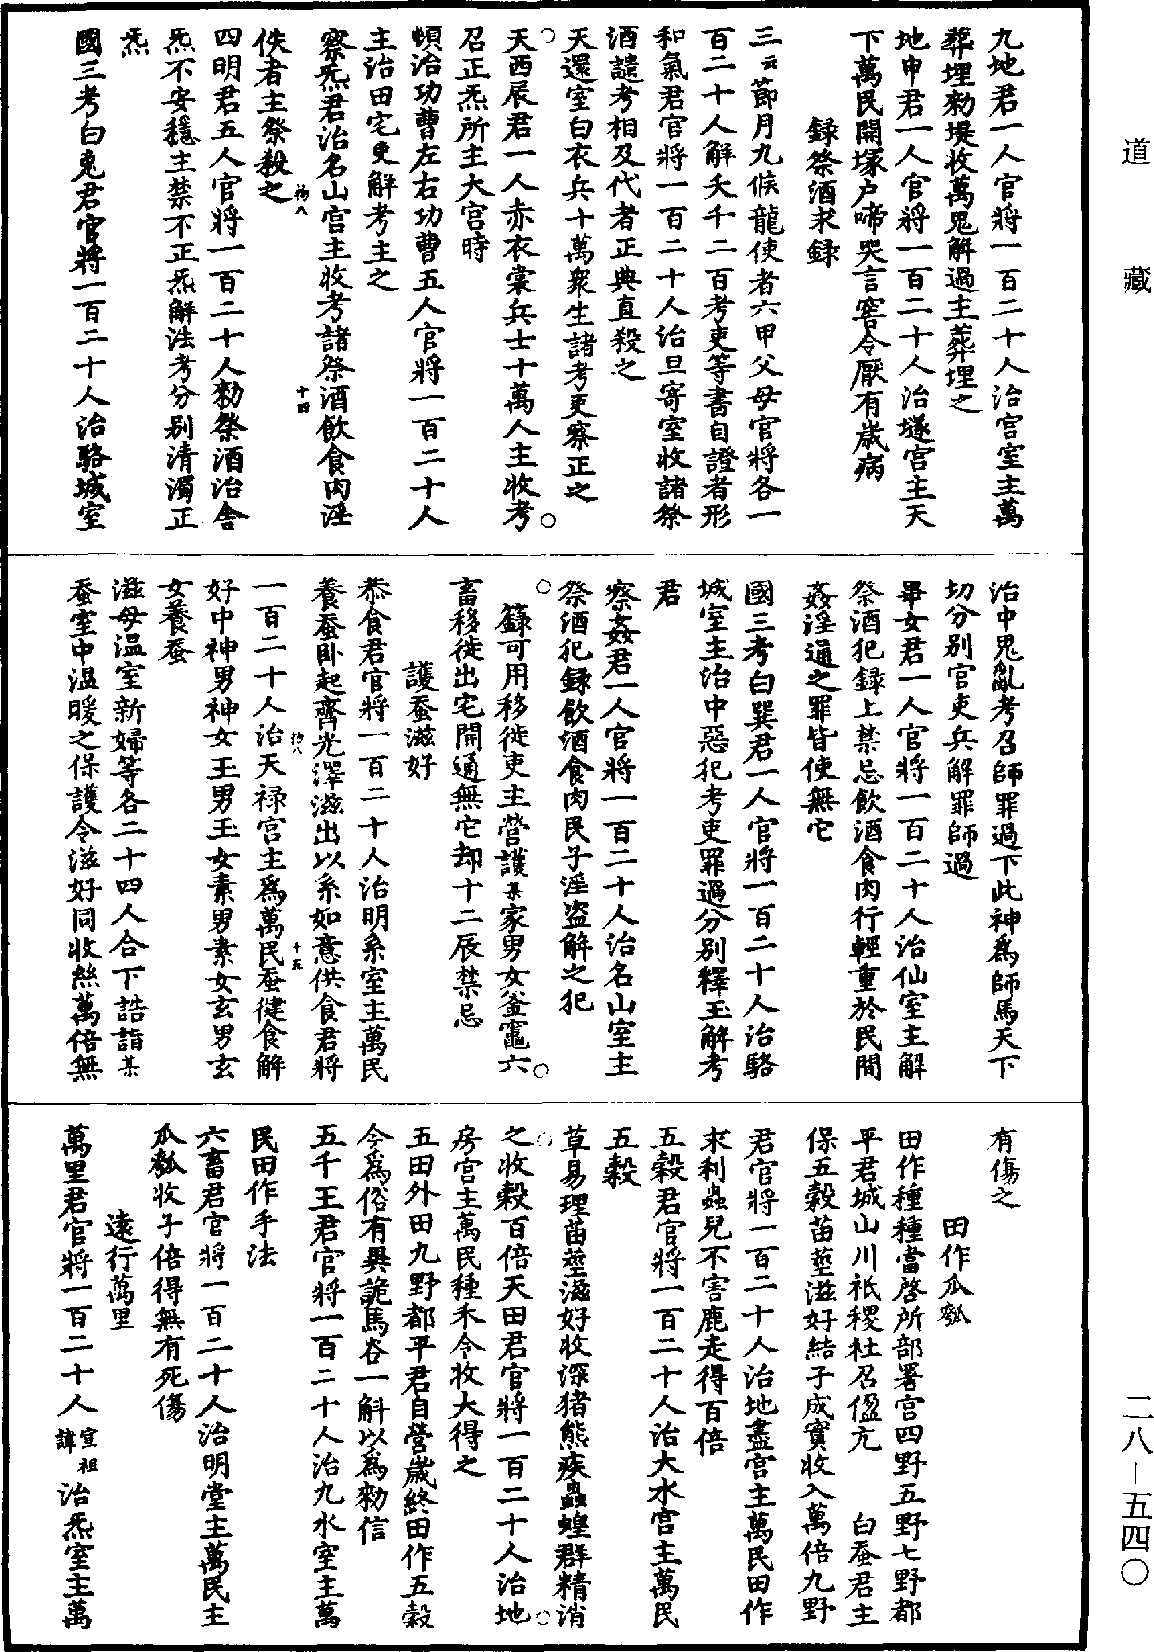 道藏
二八—五四〇
九地君一人官將一百二十人治宫室主萬
葬埋勑堤收萬鬼解過主葬埋之
地申君一人官將一百二十人治墜宫主天
下萬民開塚户啼哭言窖令厭有歲病
録祭酒求録
三云節月九候龍使者六甲父母官將各一
百二十人解夭千二百考吏等書自證者形
和氣君官將一百二十人治旦寄室收諸祭
酒譴考相及代者正典直殺之
天還室白衣兵十萬衆生諸考吏察正之
天西辰君一人赤衣裳兵士十萬人主收考
召正炁所主大宫時
頓治功曹左右功曹五人官將一百二十人
主治田宅吏解考主之
察炁君治名山宫主收考諸祭酒飲食肉淫
佚者主祭殺之
四明君五人官將一百二十人勑祭酒治舍
炁不安穩主禁不正炁解法考分别清濁正
炁
國三考白兎君官將一百二十人治駱城室
治中鬼亂考召師罪過下此神爲師馬天下
切分别官吏兵解罪師過
畢女君一人官將一百二十人治仙室主解
祭酒犯録上禁忌飲酒食肉行輕重於民間
姦淫通之罪皆使無它
國三考白巽君一人官將一百二十人治駱
城室主治中惡犯考吏罪過分别釋玉解考
君
察姦君一人官將一百二十人治名山室主
祭酒犯録飲酒食肉民子淫盗解之犯
籙可用移徙吏主營護某家男女釜竈六
畜移徙出宅開通無它却十二辰禁忌
護蚕滋好
恭食君官將一百二十人治明系室主萬民
養蚕卧起齊光澤滋出以系如意供食君將
一百二十人治天禄宫主爲萬民蚕健食解
好中神男神女玉男玉女素男素女玄男玄
女養蚕
滋母温室新婦等各二十四人合下詣詣某
蚕室中温暖之保護令滋好同收絲萬倍無
有傷之
田作瓜瓠
田作種種當啓所部署宫四野五野七野都
平君城山川祇稷社召傴亢 白蚕君主
保五穀苗莖滋好結子成實收入萬倍九野
君官將一百二十人治地盡宫主萬民田作
求利蟲兒不害鹿走得百倍
五穀君官將一百二十人治大水宫主萬民
五穀
草易理苗莖滋好收深猪熊疾蟲蝗群精消
之收穀百倍天田君官將一百二十人治地
房宫主萬民種禾令收大得之
五田外田九野都平君自營歲終田作五穀
今爲俗有異詭馬谷一斛以爲勑信
五千王君官將一百二十人治九水室主萬
民田作手法
六畜君官將一百二十人治明堂主萬民主
瓜瓠收子倍得無有死傷
遠行萬里
萬里君官將一百二十人宣祖諱治炁室主萬